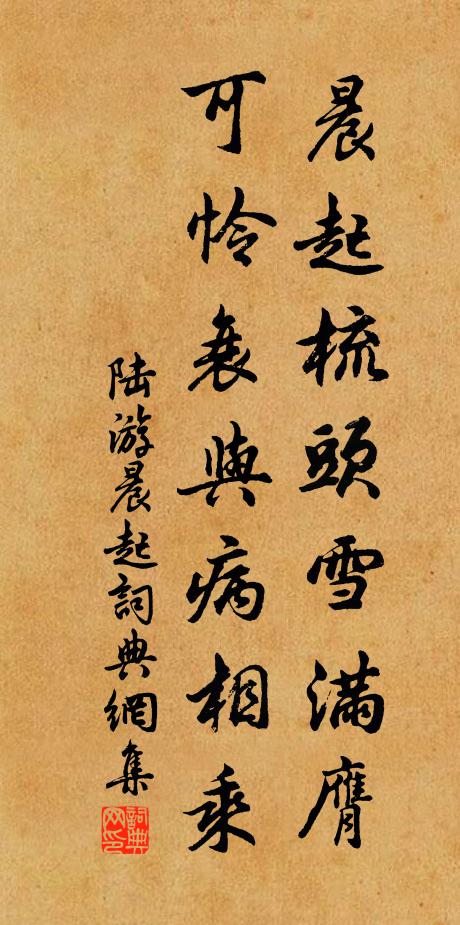 晨起梳頭雪滿膺
可怜衰與病相乘
陆游晨起詞典網集
詞典网印